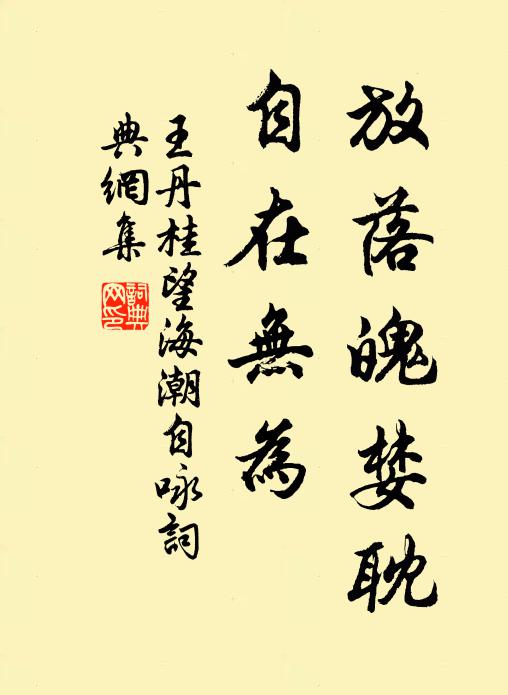 放落魄婪耽
自在無為
王丹桂望海潮自咏詞
典網集
詞典
网印